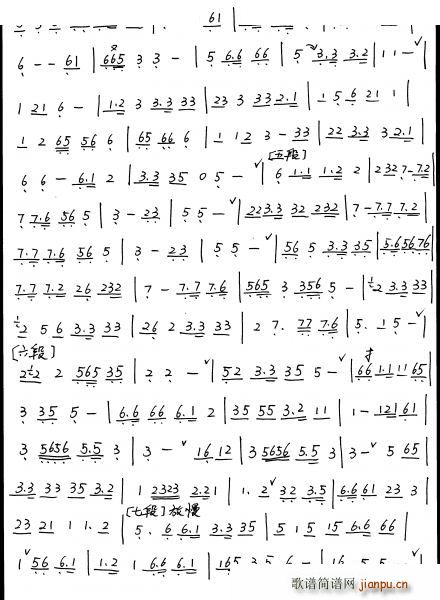 6 - - 61 | 665 3 3 - | 5 6.6 66 | 5 3.3 3.2 | 1 1 - ∨ |
1 21 6 - | 1.2 3 3.3 33 | 23 3 33 2.1 | 1 5 6 21 1 |
1 2 65 56 6 | 65 66 6 | 1 1 2 3 - 33 | 22 3.3 3 2.1 |
[五段]
6 6 - 6.1 2 | 3.3 35 0 5 - ∨ | 6 1.1 1.2 2 | 2 32 7 - 7.2
7 7.6 56 5 | 3 - 23 | 5 5 - ∨ | 22 3.3 32 232 | 7 - 7.7 7.2 |
7.7 7.6 56 5 | 3 - 23 | 5 5 - ∨ | 56 5 3.3 35 | 5.6 56 76
7.7 7.2 26 232 | 7 - 7.7 7.6 | 565 3 356 5 - | 2 3.3 33 |
2 5 6 3.3 33 | 26 2 3.3 33 | 2 7. 77 7.6 | 5. 1 5 - ∨ |
[六段]
2 2 2 565 35 | 2 2 - ∨ | 52 3.3 35 5 - ∨ | 66 1.1 11 65 |
3 35 5 - | 6.6 66 6.1 2 | 35 55 3.2 11 | 1 - 121 61 |
3 5656 5.5 3 | 3 - ∨ 16 12 | 3 5656 5.5 3 | 3 - ∨ 5 65 |
3.3 33 35 3.2 | 1 2323 2.2 1 | 1. 2 ∨ 32 3.5 | 6.6 61 23 3 |
[七段] 放慢
23 21 1 1. 2 | 5. 6 6.1 3.3 35 | 5 1 5 15 6.6 66 |
1 ∨ 56 6.1 | 1.2 1 6.6 6.1 |
歌谱简谱网
jianpu.cn